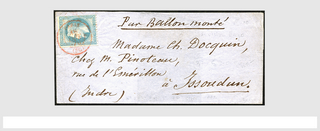 Par Ballon monté
Madame Ch. Docquin,
Chez M. Pinoteau,
rue de l'Emérillon
à Issoudun.
(Indre)